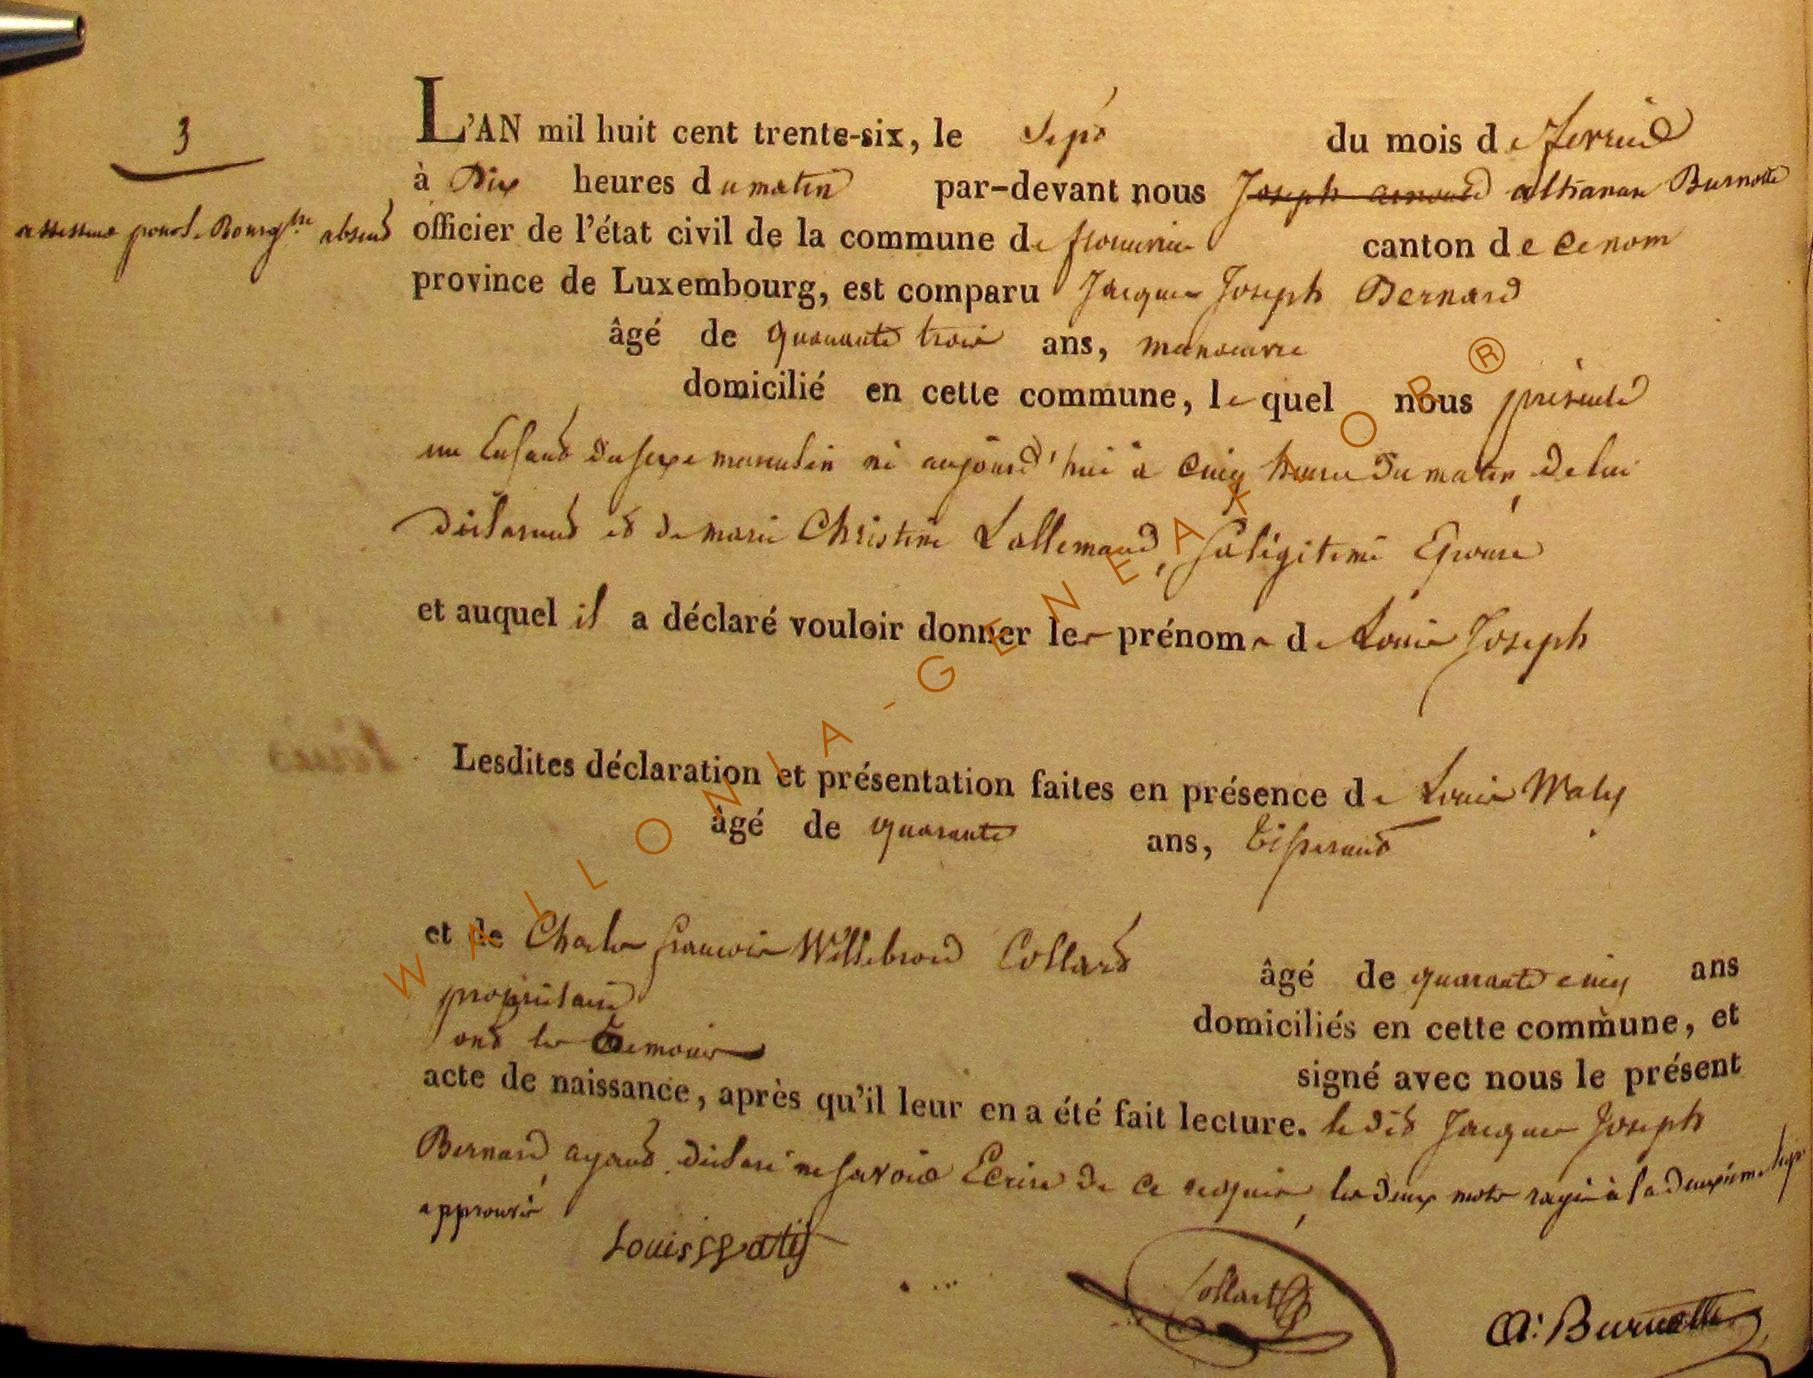 3
L'AN mil huit cent trente-six, le Sept du mois de fevrier
à Dix heures du matin par-devant nous Joseph arnould Burnotte
assesseur pour le Bourgtre absent
officier de l'état civil de la commune de canton de ce nom
province de Luxembourg, est comparu Jacques Joseph Bernard
âgé de quarante trois ans, manoeuvre
domicilié en cette commune, lequel nous présente
un Enfant du sexe masculin né aujourd'hui à cinq heures du matin, de lui
déclarant et de marie Christine Lallemand, sa légitime Epouse
et auquel il a déclaré vouloir donner les prénoms de Louis Joseph
Lesdites déclaration et présentation faites en présence de Louis Waty
âgé de quarante ans, tisserand
et de Charles francois Willebrord Collard âgé de quarante cinq ans
propriétaire domiciliés en cette commune, et
ont les temoins signé avec nous le présent
acte de naissance, après qu'il leur en a été fait lecture. le dit Jacques Joseph
Bernard ayant déclaré ne savoir Ecrire de ce requis, les deux mots rayés à la deuxième ligne
approuvés
Louis Watÿ
Collart
A: Burnotte
WALLONIA-GENEAKLOR ®